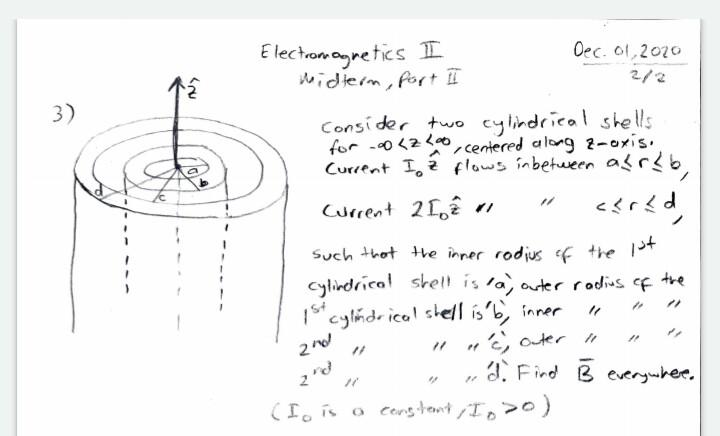 Electromagnetics II
Midterm, Part II
Dec. 01, 2020
2/2
3)
ẑ
a
b
c
d
Consider two cylindrical shells
for -∞<z<∞, centered along z-axis.
Current I₀ẑ flows inbetween a≤r≤b,
Current 2I₀ẑ " " c≤r≤d,
such that the inner radius of the 1st
cylindrical shell is 'a', outer radius of the
1st cylindrical shell is 'b', inner " " "
2nd " " " 'c', outer " " "
2nd " " " 'd'. Find B̄ everywhere.
(I₀ is a constant, I₀>0)